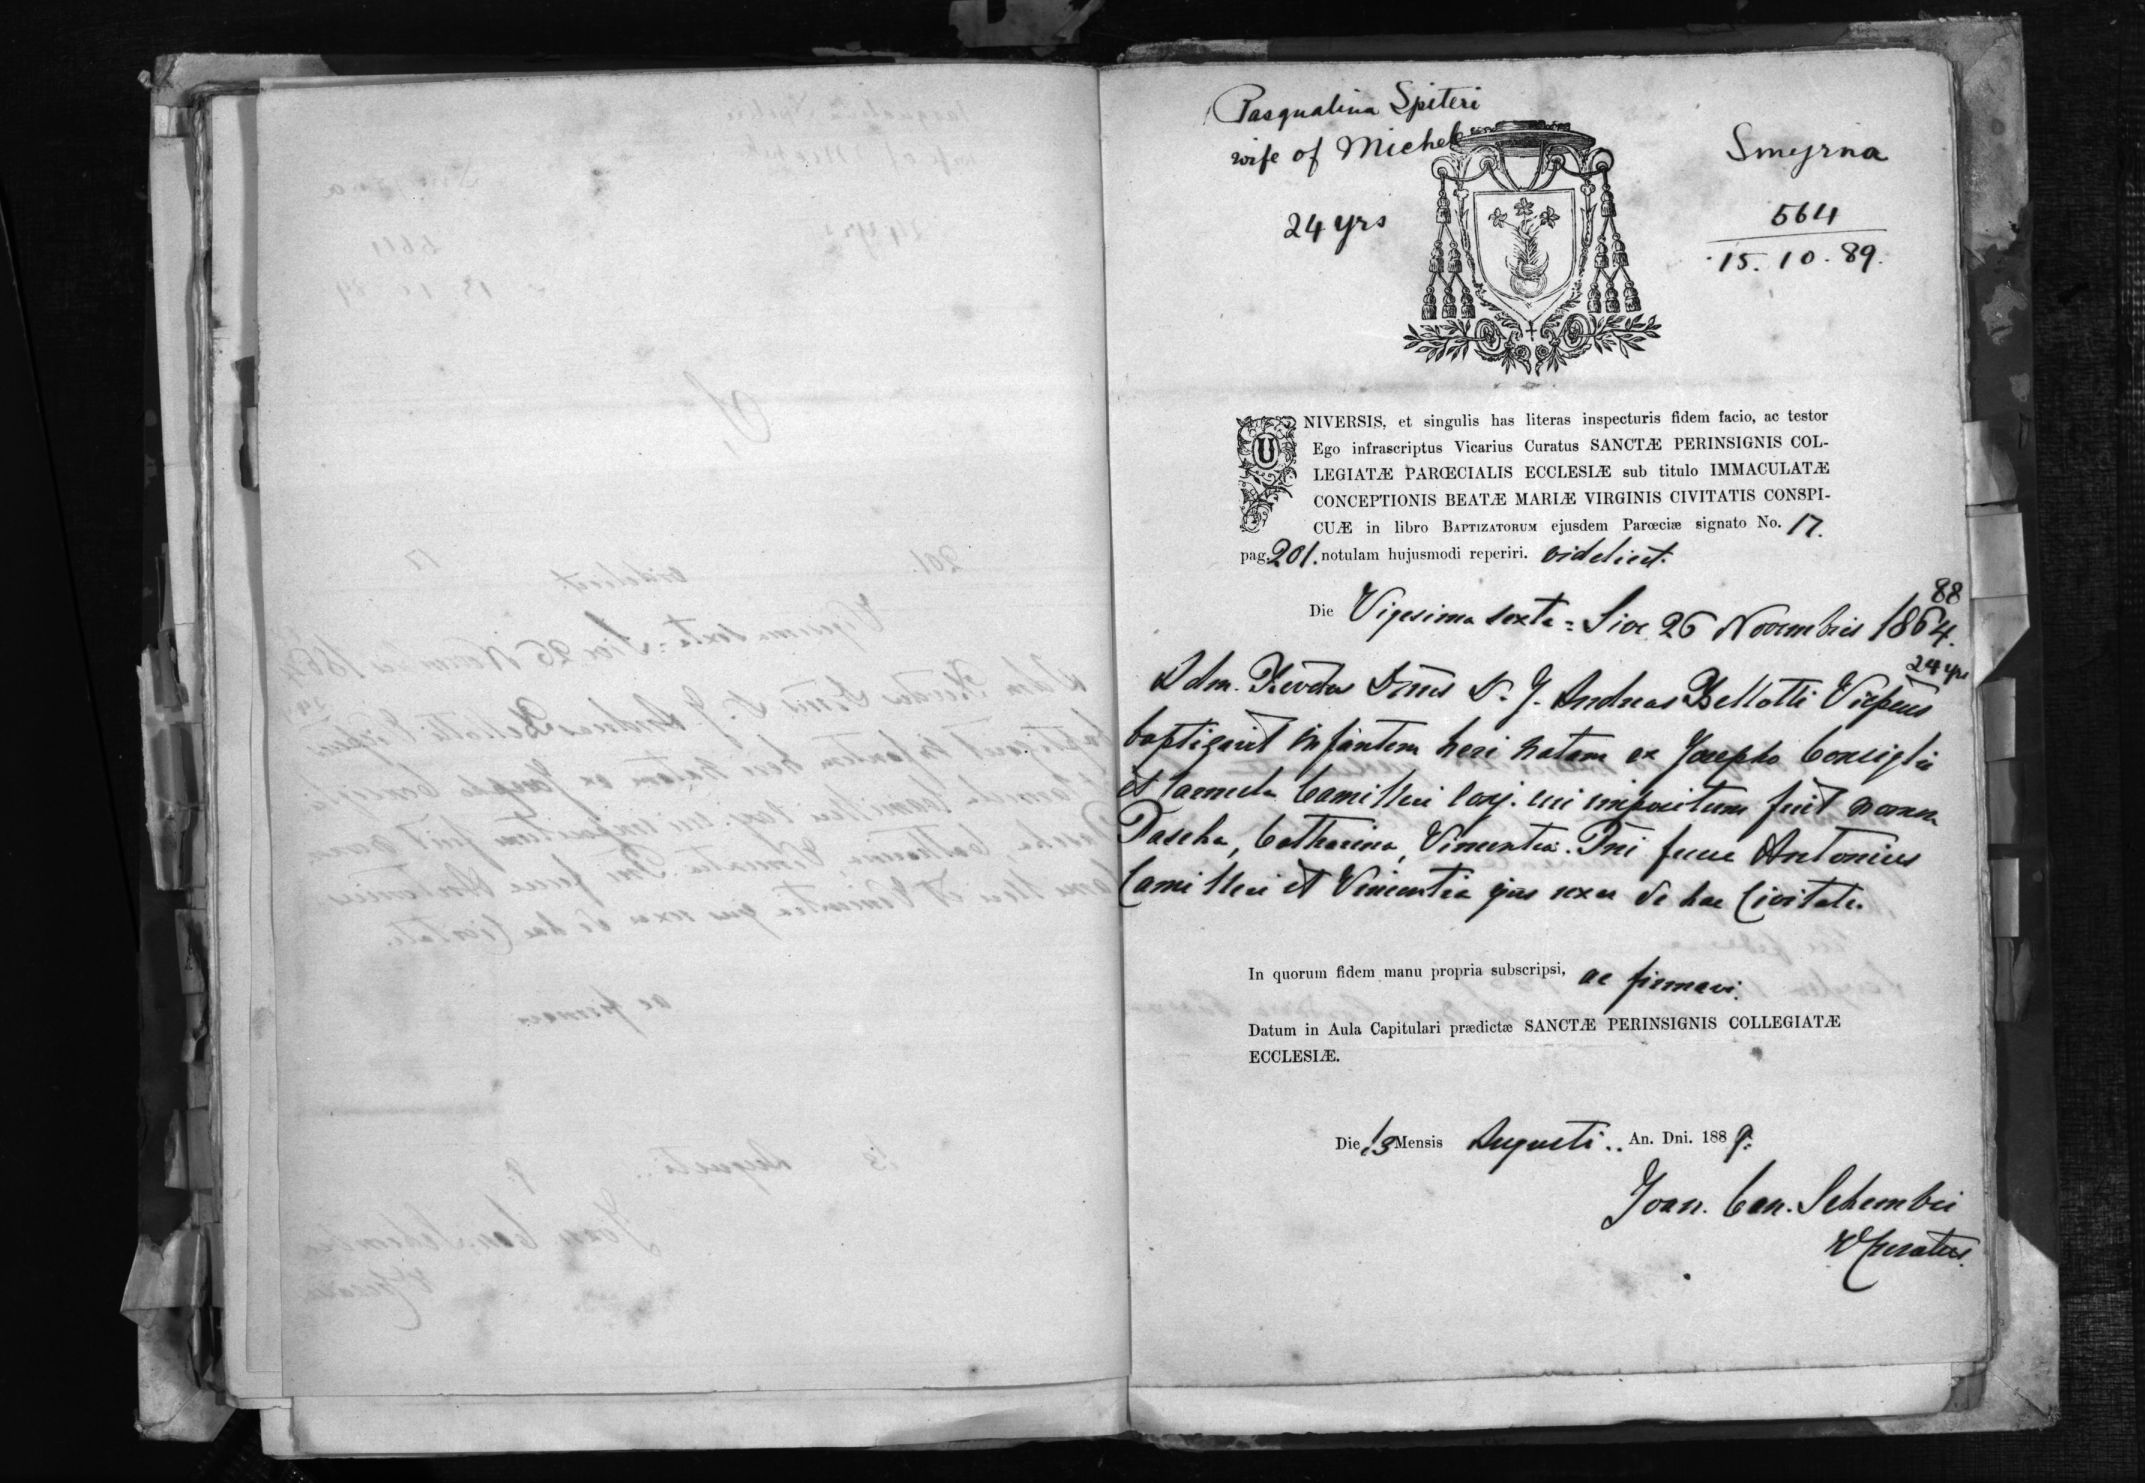 Pasqualina Spiteri
wife of Michele
24 yrs
Smyrna
564
15. 10. 89.
UNIVERSIS, et singulis has literas inspecturis fidem facio, ac testor
Ego infrascriptus Vicarius Curatus SANCTÆ PERINSIGNIS COL-
LEGIATÆ PARŒCIALIS ECCLESIÆ sub titulo IMMACULATÆ
CONCEPTIONIS BEATÆ MARIÆ VIRGINIS CIVITATIS CONSPI-
CUÆ in libro BAPTIZATORUM ejusdem Parœciæ signato No. 17.
pag. 201. notulam hujusmodi reperiri. videlicet.
88
Die Vigesima sexta = Sive 26 Novembris 1864.
24 yrs
Adm. Revdus Dnus D. J. Andreas Bellotti
baptizavit infantem heri natam ex Josepho Consiglio
et Carmela Camilleri conj. cui impositum fuit nomen
Pascha, Catharina, Vincentia. Pni fuere Antonius
Camilleri et Vincentia ejus uxor de hac Civitate.
In quorum fidem manu propria subscripsi, ac firmavi.
Datum in Aula Capitulari prædictæ SANCTÆ PERINSIGNIS COLLEGIATÆ
ECCLESIÆ.
Die 13 Mensis Augusti .. An. Dni. 1889.
Joan. Can. Schembri
V. Curatus.